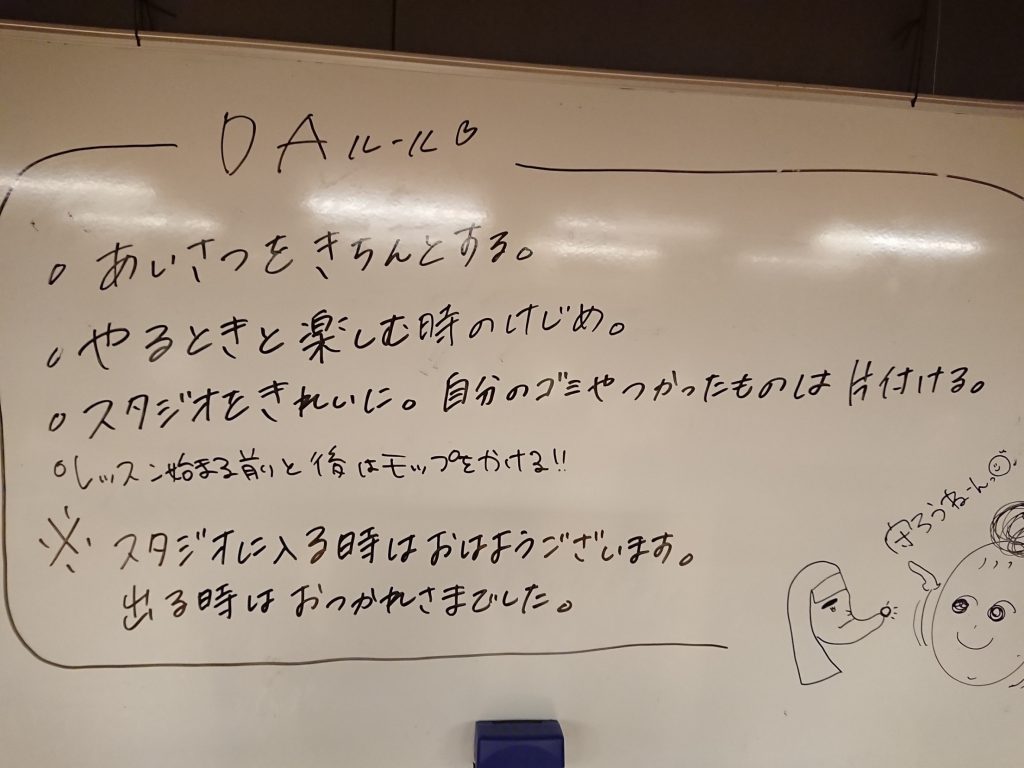 DAルール♡
○ あいさつをきちんとする。
○ やるときと楽しむ時のけじめ。
○ スタジオをきれいに。自分のゴミやつかったものは片付ける。
○ レッスン始まる前と後はモップをかける!!
※ スタジオに入る時はおはようございます。
出る時はおつかれさまでした。
守ろうねーんっ